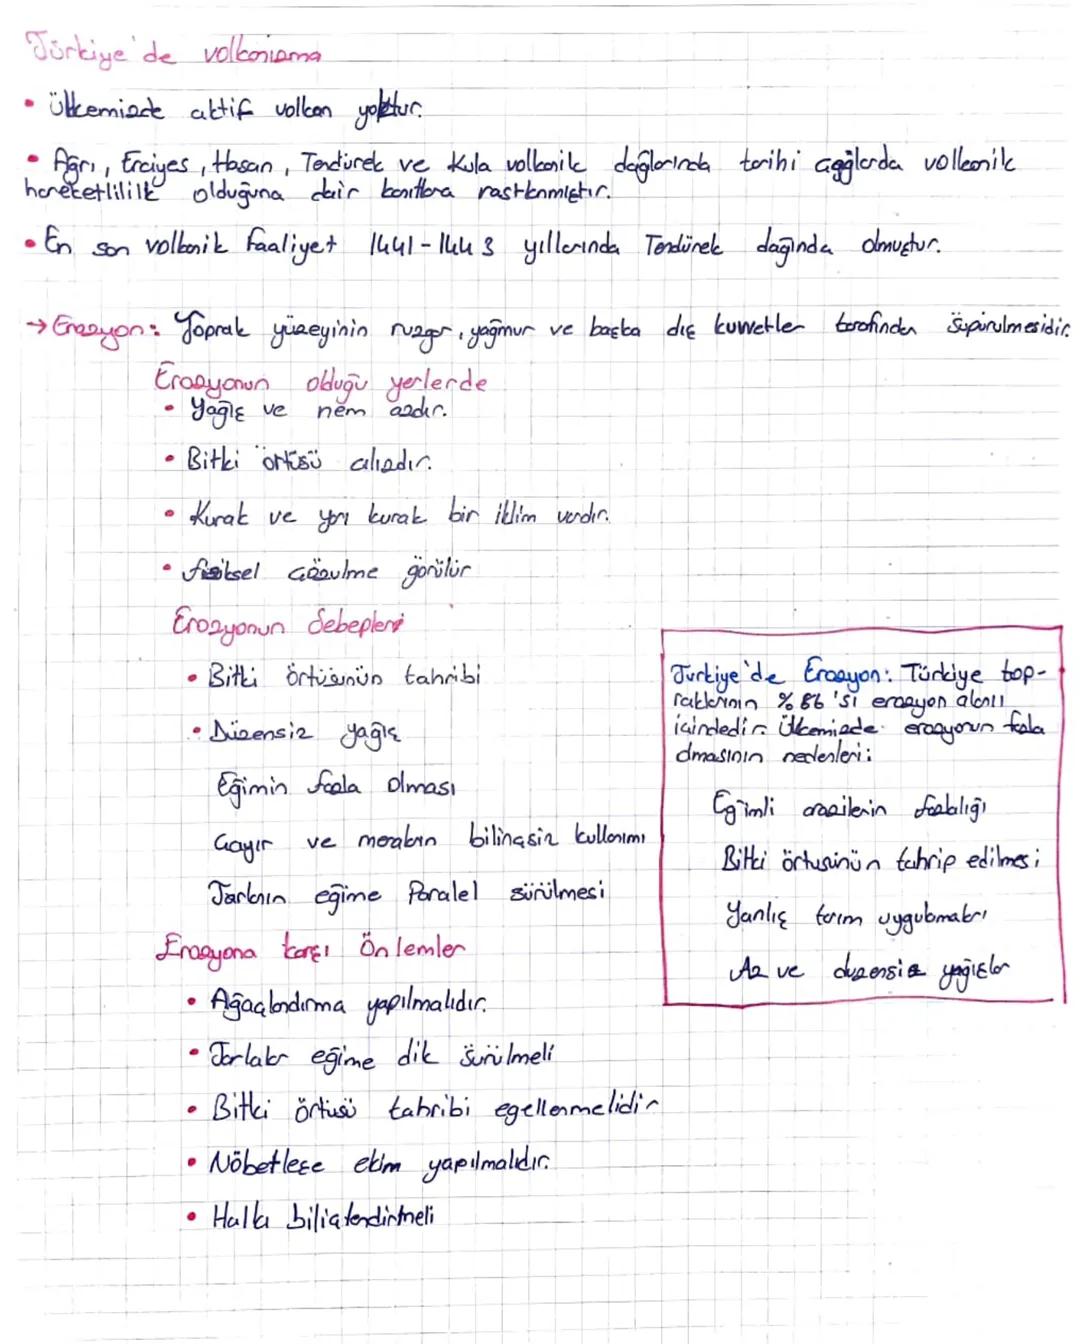 Türkiye'de volkanizma
• Ülkemizde aktif volkan yoktur.
• Ağrı, Erciyes, Hasan, Tendürek ve Kula volkanik dağlarında tarihi çağlarda volkanik
hareketlilik olduğuna dair kanıtlara rastlanmıştır.
• En son volkanik faaliyet 1441-1443 yıllarında Tendürek dağında olmuştur.
→ Erozyon: Toprak yüzeyinin rüzgar, yağmur ve başka dış kuvvetler tarafından süpürülmesidir.
Erozyonun olduğu yerlerde
• Yağış ve nem azdır.
• Bitki örtüsü cılızdır.
• Kurak ve yarı kurak bir iklim vardır.
• fiziksel çözülme görülür
Erozyonun Sebepleri
• Bitki örtüsünün tahribi
• Düzensiz yağış
Eğimin fazla olması
Çayır ve meraların bilinçsiz kullanımı
Tarlanın eğime Paralel sürülmesi
Erozyona karşı Önlemler
• Ağaçlandırma yapılmalıdır.
• Tarlalar eğime dik sürülmeli
• Bitki örtüsü tahribi egellenmelidir
• Nöbetleşe ekim yapılmalıdır.
• Halkı biliçlendirmeli
Türkiye'de Erozyon: Türkiye top-
raklarının %86'sı erozyon alanı
içindedir. Ülkemizde erozyonun fazla
olmasının nedenleri:
Eğimli arazilerin fazlalığı
Bitki örtüsünün tahrip edilmesi
Yanlış tarım uygulmaları
Az ve düzensiz yağışlar